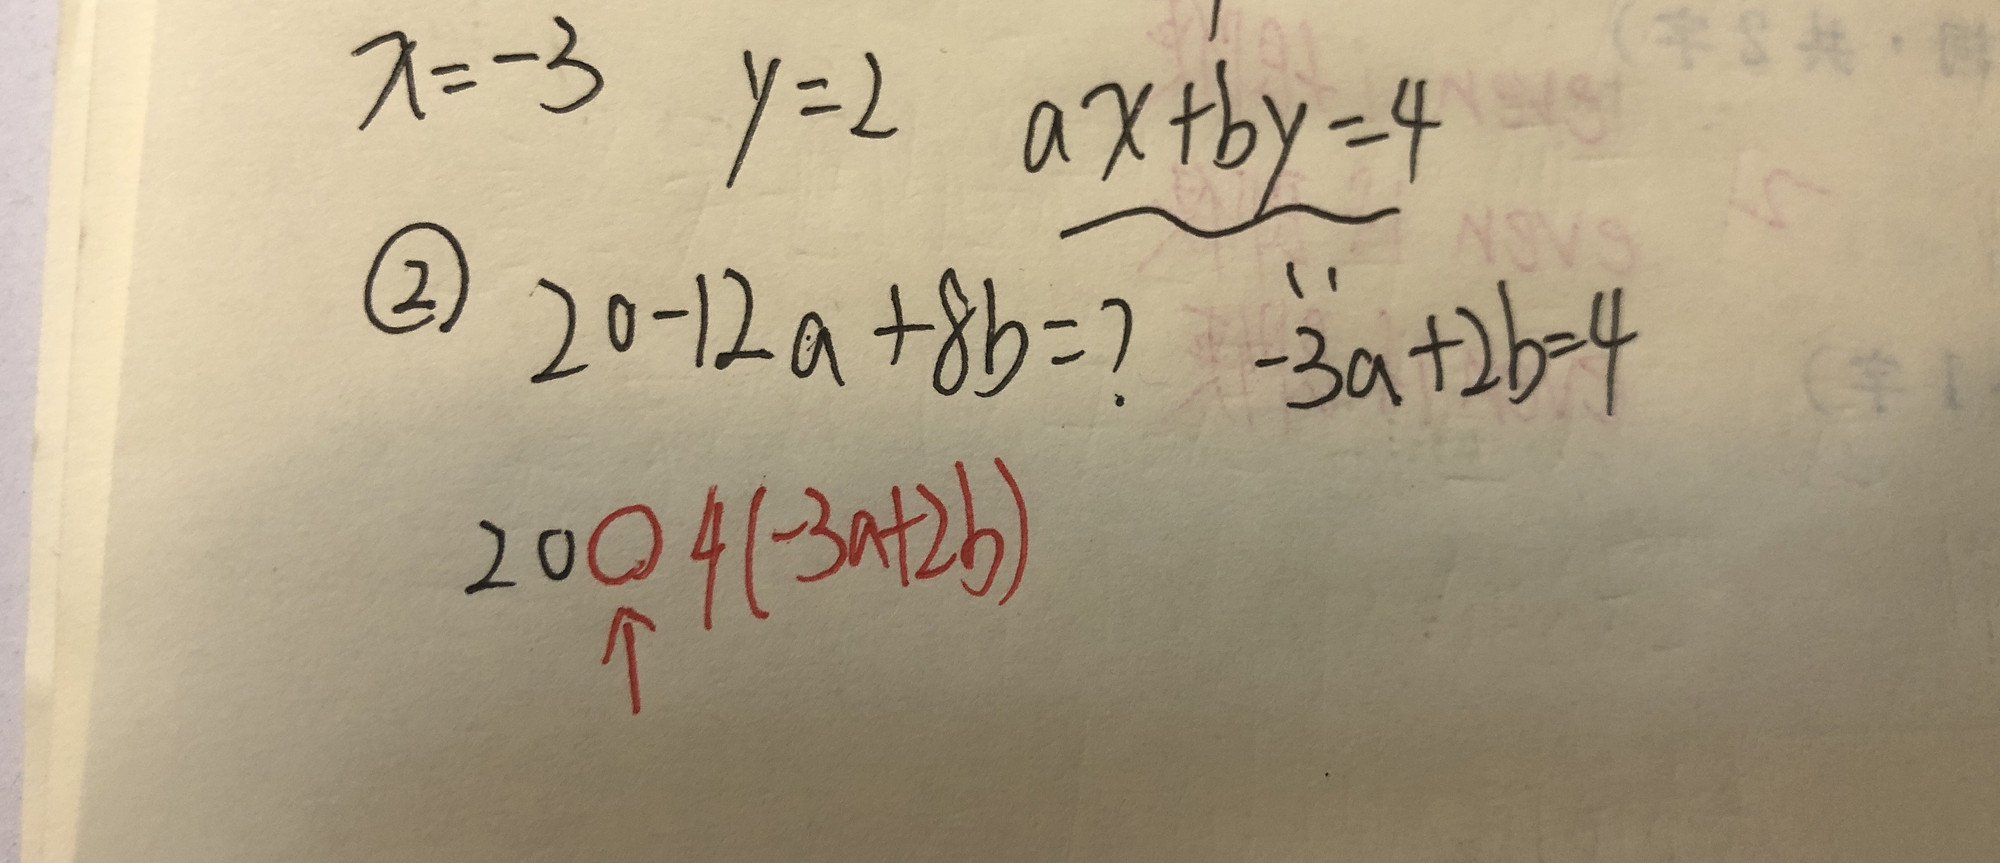 x=-3 y=2 ax+by=4
② 20-12a+8b=? -3a+2b=4
20○4(-3a+2b)
↑